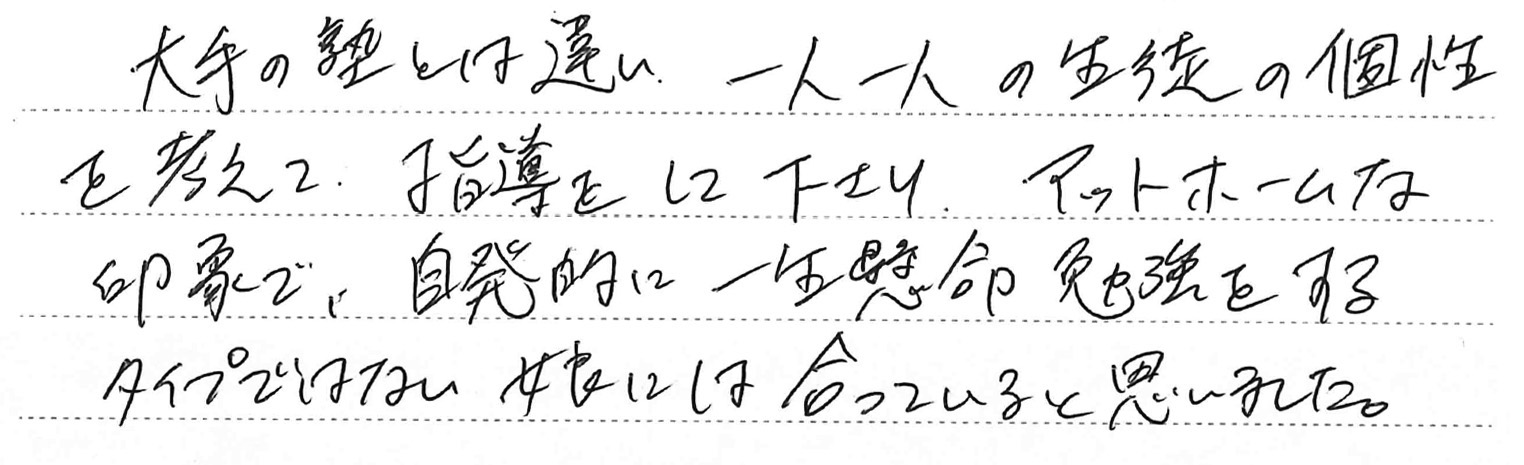 大手の塾とは違い、一人一人の生徒の個性
を考えて、指導をして下さり、アットホームな
印象で、自発的に一生懸命勉強をする
タイプではない娘には合っていると思いました。